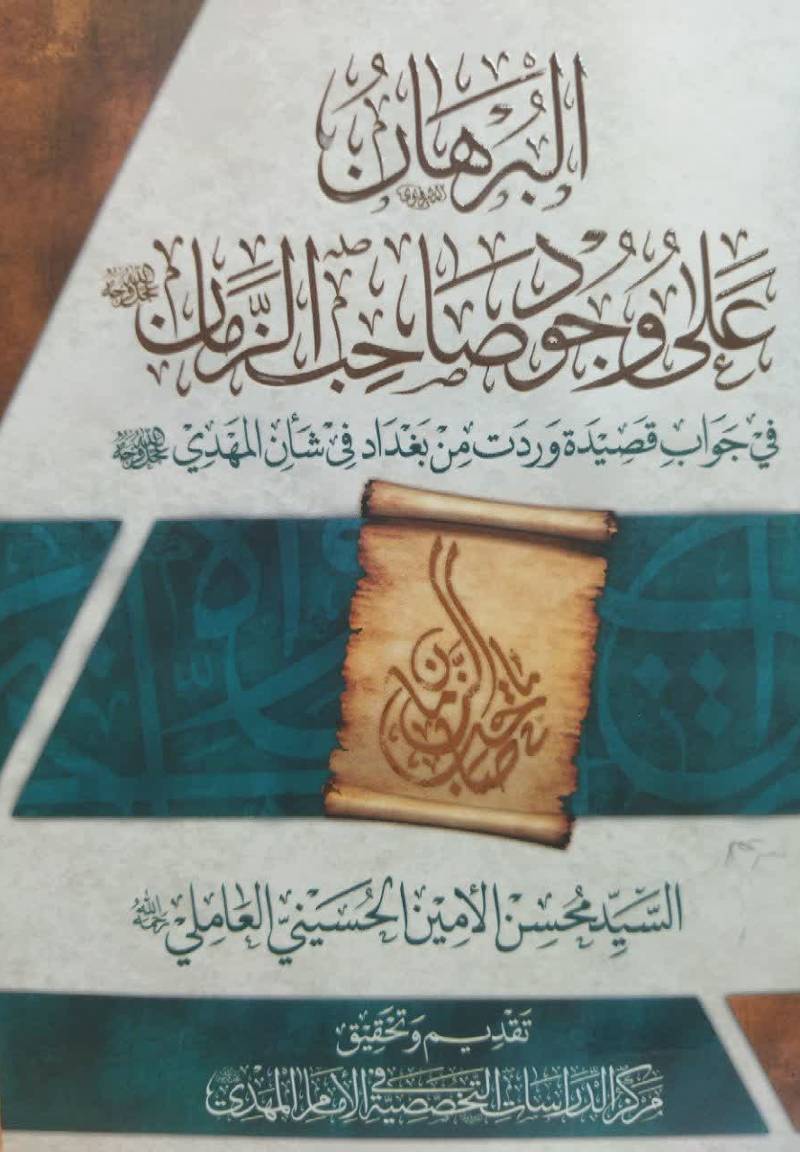 البُرْهَانُ
عَلَى وُجُودِ صَاحِبِ الزَّمَانِ
فِي جَوَابِ قَصِيدَة وَرَدَت مِنْ بَغْدَاد فِي شَأنِ المَهْدِي
يا صاحب الزمان
السَّيِّد مُحْسِن الأَمِين الحُسَيْنِيّ العَامِلِي رحمه الله
تَقْدِيم وَتَحْقِيق
مَرْكَز الدِّرَاسَات التَّخَصُّصِيَّة فِي الإِمَام المَهْدِي